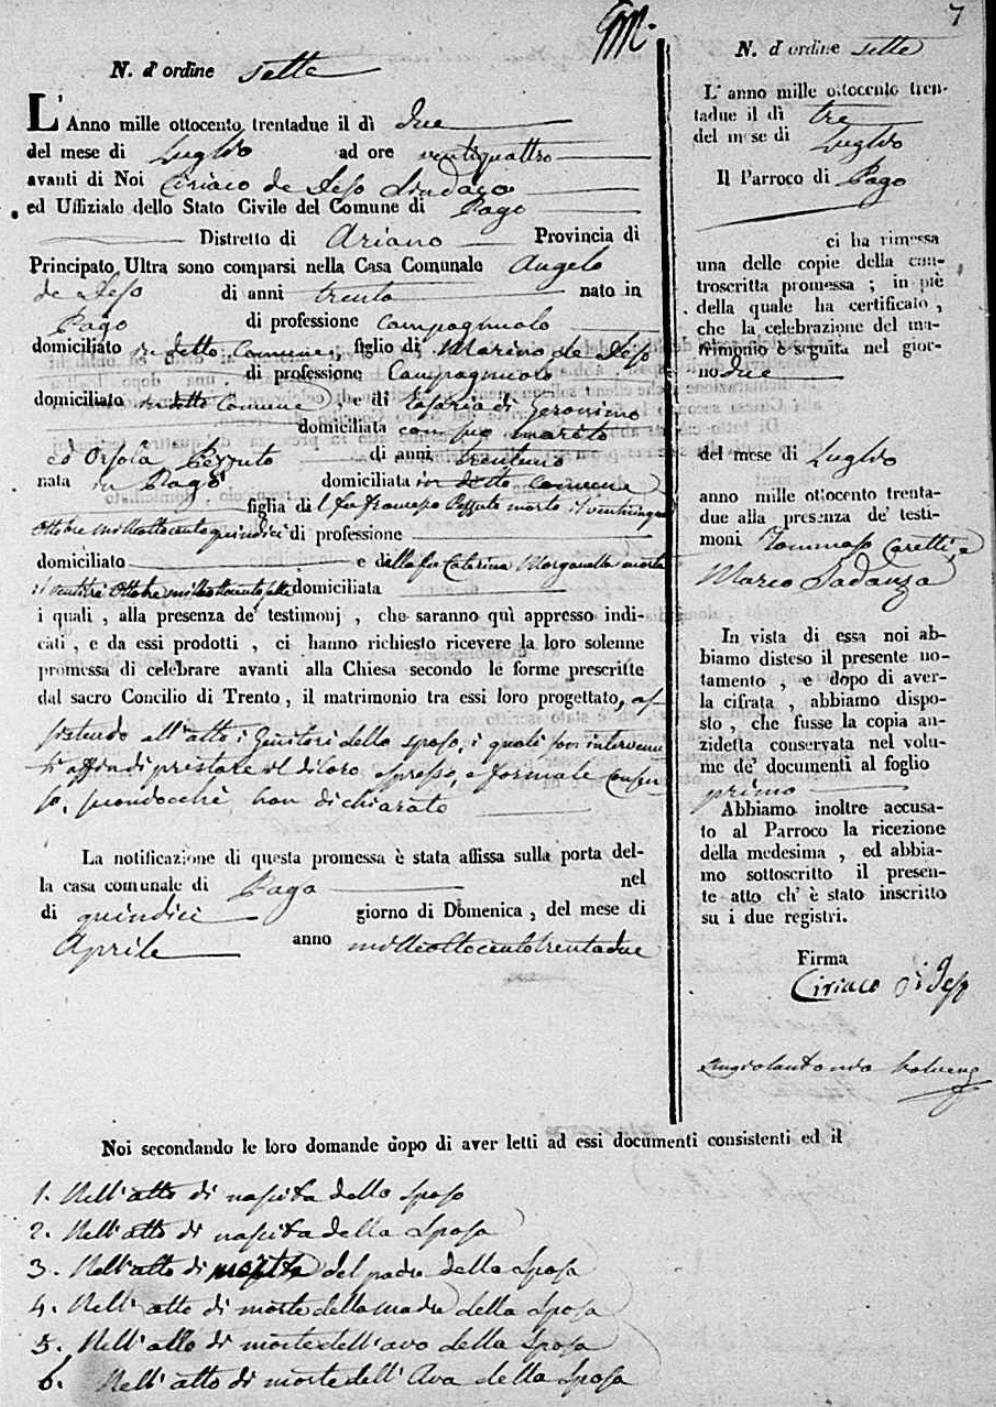 7
N. d'ordine sette
L'Anno mille ottocento trentadue il dì due
del mese di Luglio ad ore ventiquattro
avanti di Noi Ciriaco de Jeso Sindaco
ed Uffiziale dello Stato Civile del Comune di Pago
Distretto di Ariano Provincia di
Principato Ultra sono comparsi nella Casa Comunale Angelo
de Jeso di anni trenta nato in
Pago di professione campagnuolo
domiciliato in detto Comune, figlio di Marino de Jeso
di professione Campagnuolo
domiciliato in detto Comune e di di Geronimo
domiciliata con suo marito
ed Orsola Pezzuto di anni trentuno
nata in Pago domiciliata in detto comune
figlia del fu Francesco Pezzuto morto il
Ottobre milleottocentoquindici di professione
domiciliato e della fu Caterina Morganella morta
il ventitrè Ottobre milleottocentosette domiciliata
i quali, alla presenza de' testimonj, che saranno quì appresso indi-
cati, e da essi prodotti, ci hanno richiesto ricevere la loro solenne
promessa di celebrare avanti alla Chiesa secondo le forme prescritte
dal sacro Concilio di Trento, il matrimonio tra essi loro progettato, as-
sistendo all'atto i Genitori dello sposo, i quali son intervenu
ti affin di prestare il di loro espresso, e formale consen
so, secondocchè han dichiarato
La notificazione di questa promessa è stata affissa sulla porta del-
la casa comunale di Pago nel
di quindici giorno di Domenica, del mese di
Aprile anno milleottocentotrentadue
N. d'ordine sette
L'anno mille ottocento tren-
tadue il dì tre
del mese di Luglio
Il Parroco di Pago
ci ha rimessa
una delle copie della con-
troscritta promessa; in piè
della quale ha certificato,
che la celebrazione del ma-
trimonio è seguita nel gior-
no due
del mese di Luglio
anno mille ottocento trenta-
due alla presenza de' testi-
moni Tommaso Caretti, e
Marco Sadanza
In vista di essa noi ab-
biamo disteso il presente no-
tamento, e dopo di aver-
la cifrata, abbiamo dispo-
sto, che fusse la copia an-
zidetta conservata nel volu-
me de' documenti al foglio
primo
Abbiamo inoltre accusa-
to al Parroco la ricezione
della medesima, ed abbia-
mo sottoscritto il presen-
te atto ch' è stato inscritto
su i due registri.
Firma
Ciriaco di Jeso
Angiolantonio
Noi secondando le loro domande dopo di aver letti ad essi documenti consistenti ed il
1. Nell'atto di nascita dello sposo
2. Nell'atto di nascita della Sposa
3. Nell'atto di morte del padre della Sposa
4. Nell'atto di morte della madre della Sposa
5. Nell'atto di morte dell'avo della Sposa
6. Nell'atto di morte dell'Ava della Sposa